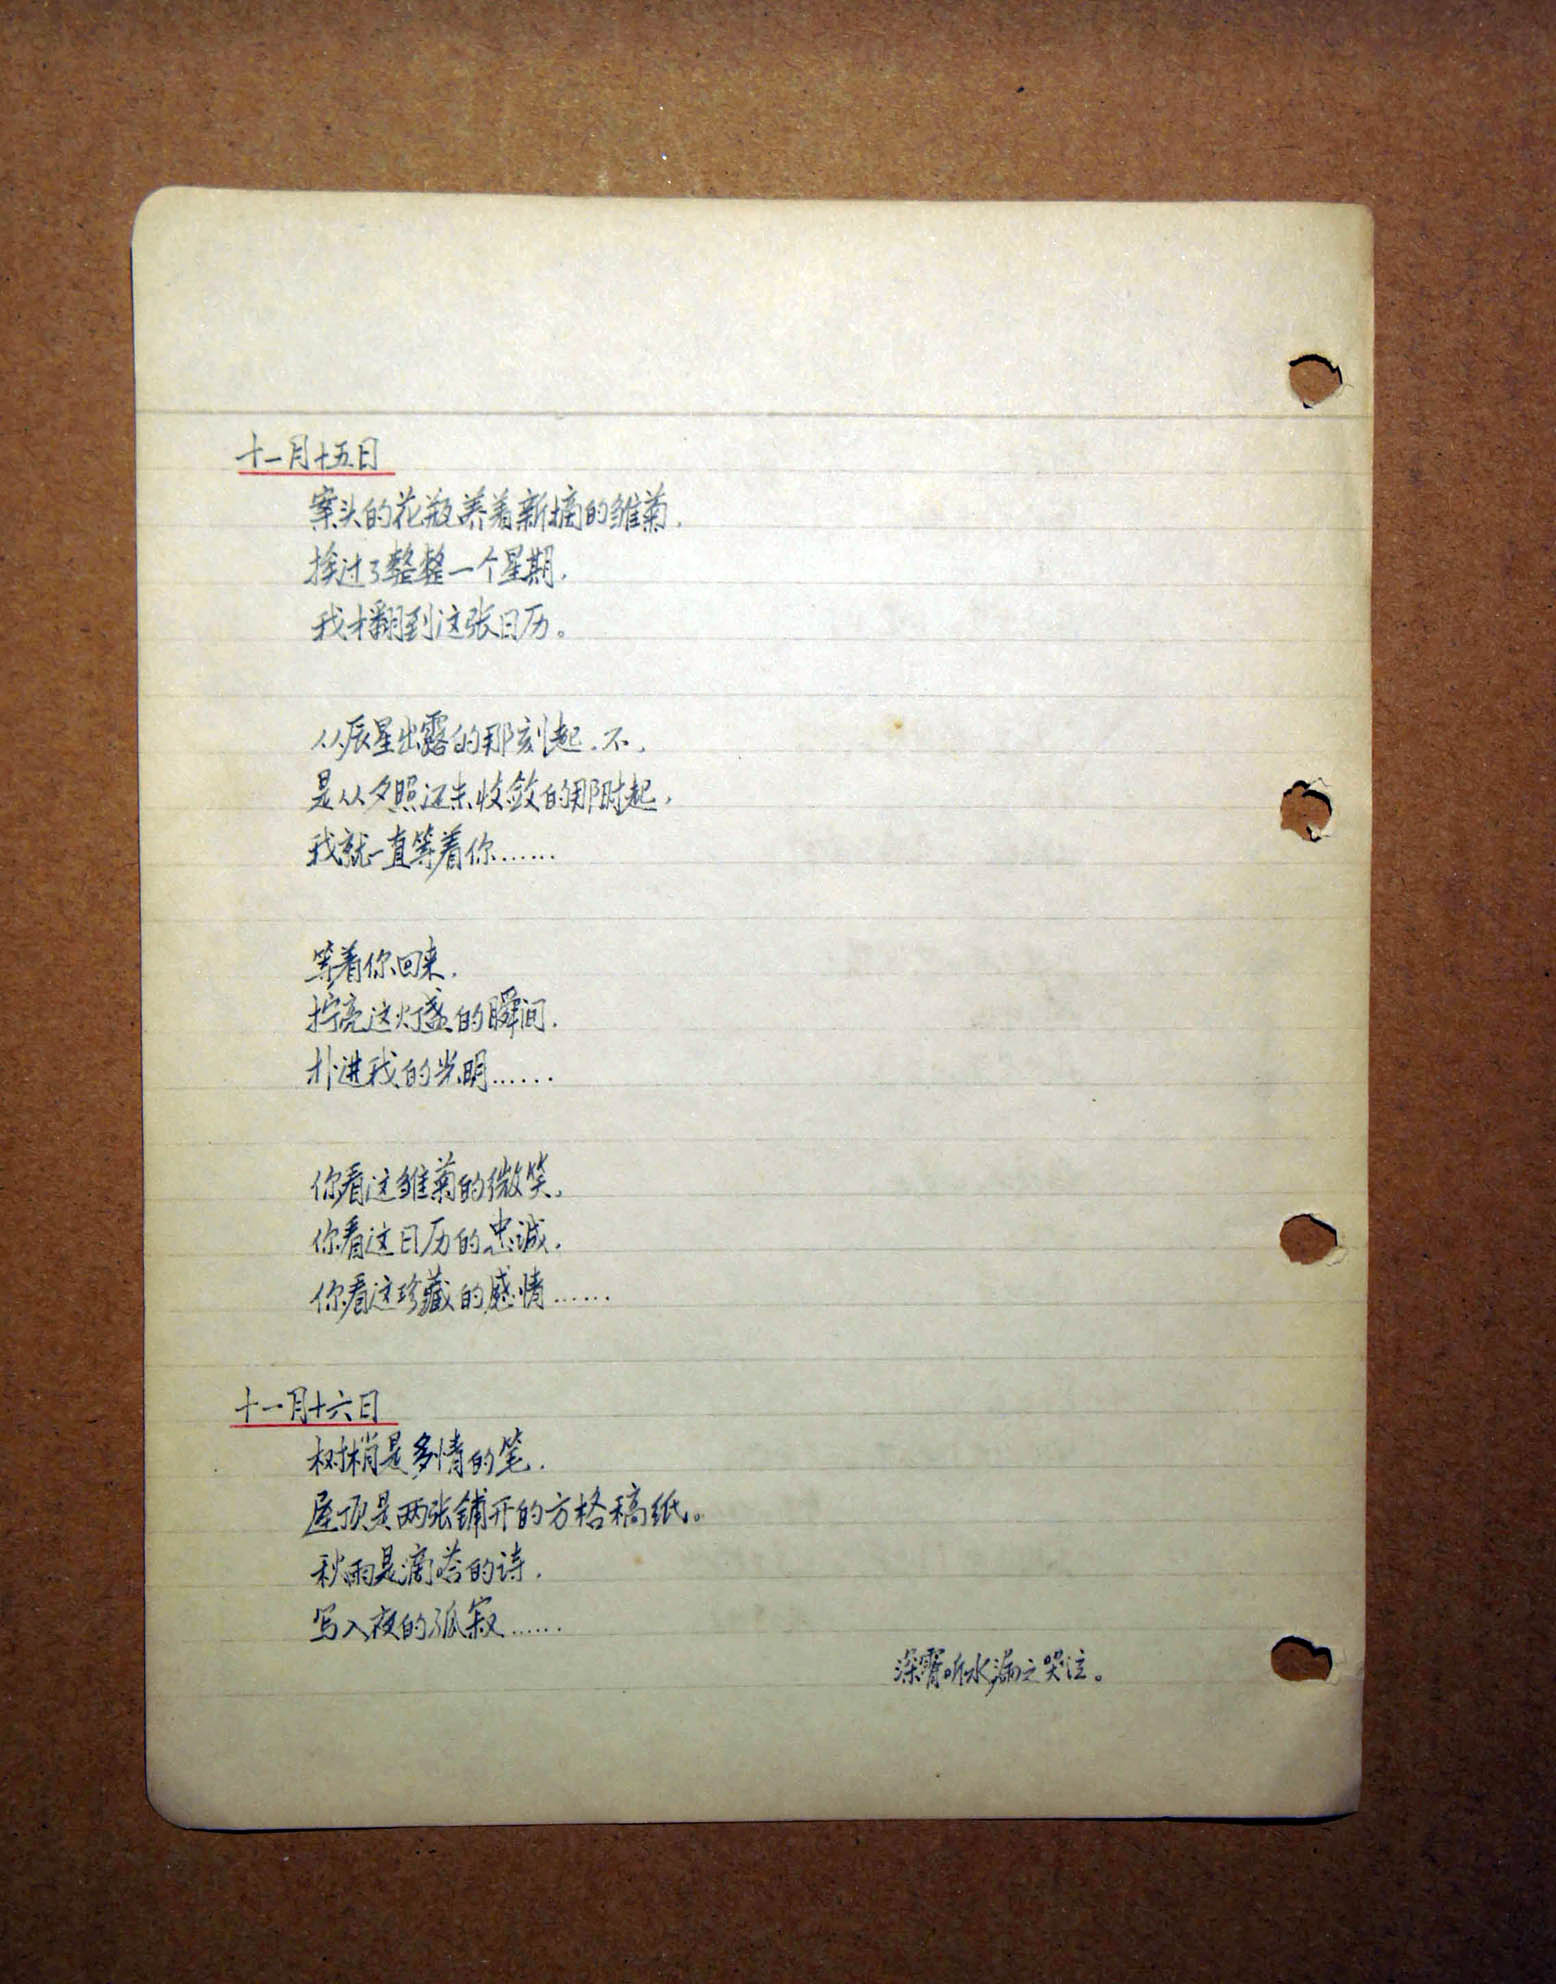 十一月十五日
案头的花瓶养着新摘的雏菊，
挨过了整整一个星期，
我才翻到这张日历。
从辰星出露的那刻起，不，
是从夕照还未收敛的那时起，
我就一直等着你……
等着你回来，
拧亮这灯盏的瞬间，
扑进我的光明……
你看这雏菊的微笑，
你看这日历的忠诚，
你看这珍藏的感情……
十一月十六日
树梢是多情的笔，
屋顶是两张铺开的方格稿纸。
秋雨是滴嗒的诗，
写入夜的孤寂……
深宵听水漏之哭泣。